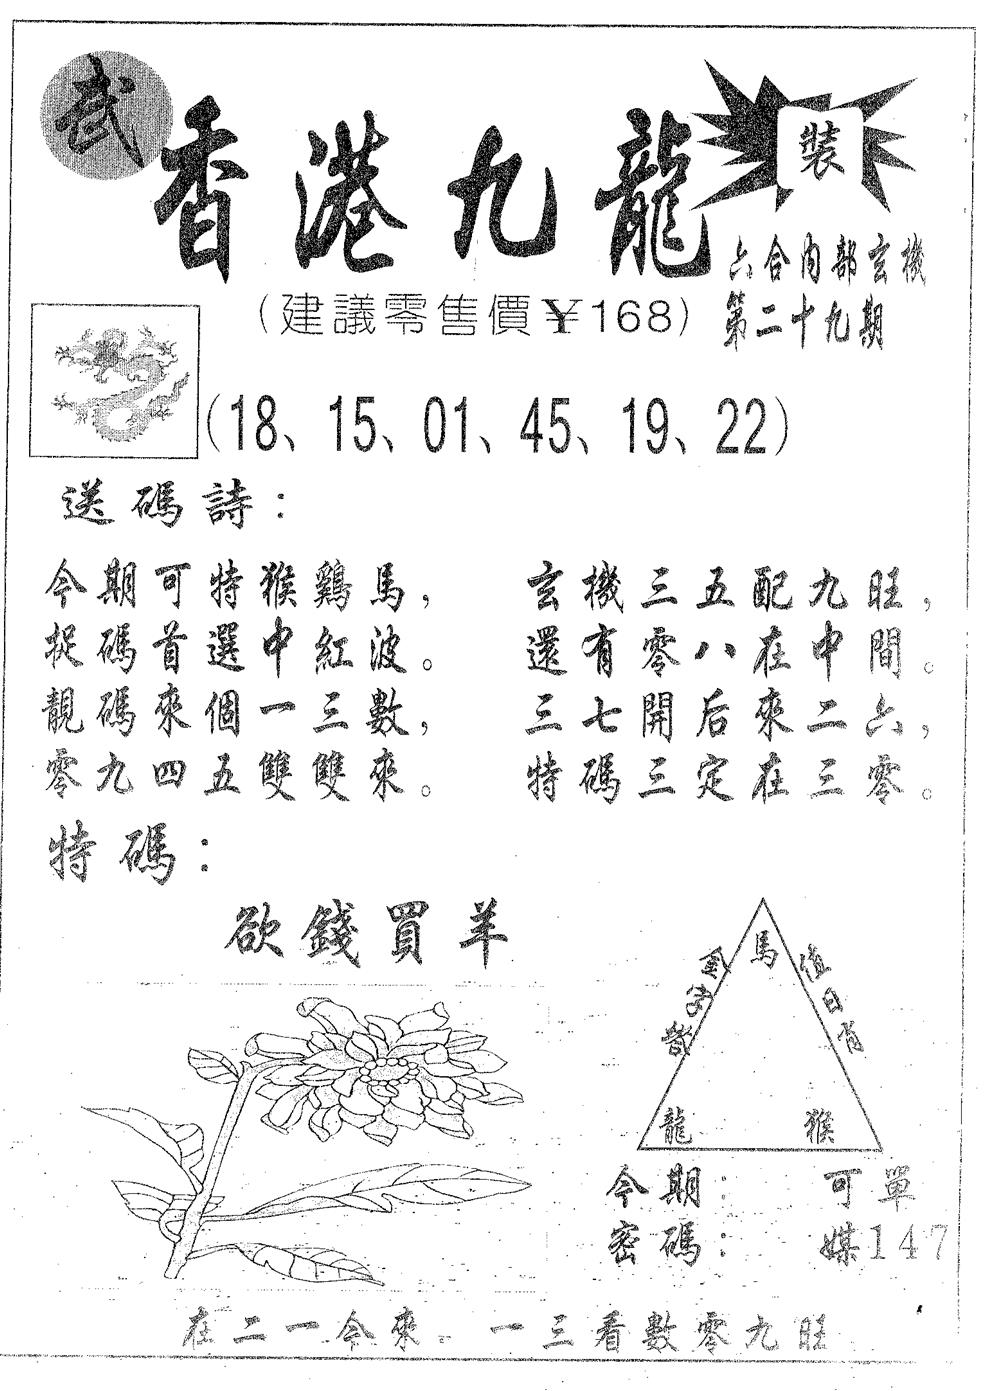 武
香港九龍
裝
六合内部玄機
第二十九期
(建議零售價¥168)
(18、15、01、45、19、22)
送碼詩：
今期可特猴鷄馬，
捉碼首選中紅波。
靚碼來個一三數，
零九四五雙雙來。
玄機三五配九旺，
還有零八在中間。
三七開后來二六，
特碼三定在三零。
特碼：
欲錢買羊
馬
金字
值日肖
龍
猴
今期： 可單
密碼： 媒147
在二一今來。一三看數零九旺